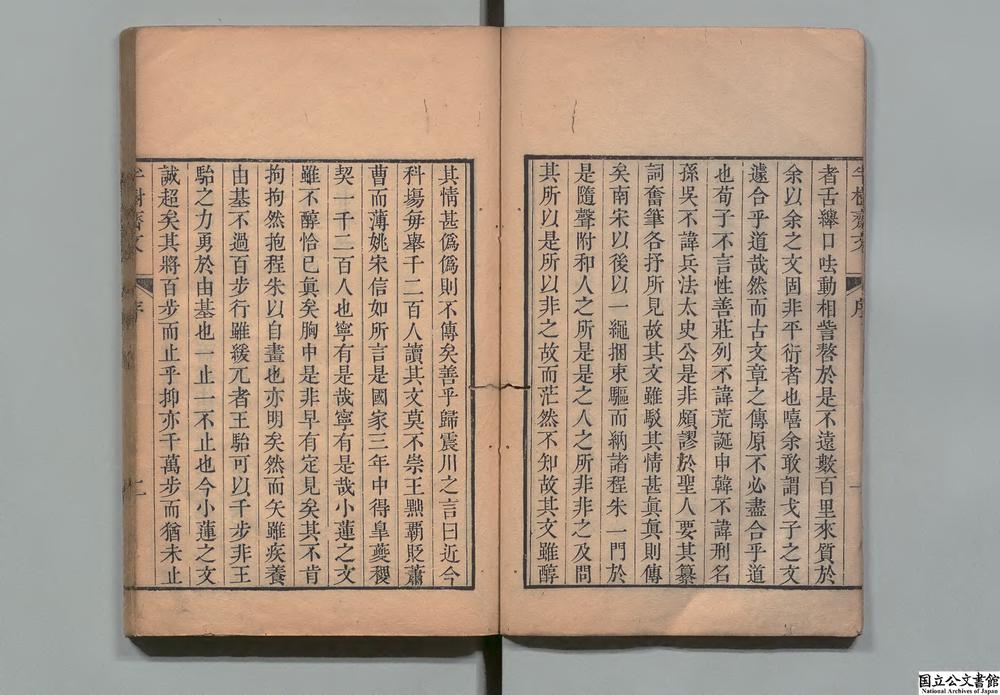 者舌縴口呿動相訾謷於是不遠數百里來質於
余以余之文固非平衍者也嘻余敢謂戈子之文
遽合乎道哉然而古文章之傳原不必盡合乎道
也荀子不言性善莊列不諱荒誕申韓不諱刑名
孫吳不諱兵法太史公是非頗謬於聖人要其纂
詞奮筆各抒所見故其文雖駁其情甚眞眞則傳
矣南宋以後以一繩捆束驅而納諸程朱一門於
是隨聲附和人之所是是之人之所非非之及問
其所以是所以非之故而茫然不知故其文雖醇
序
一
其情甚僞僞則不傳矣善乎歸震川之言曰近今
科塲每舉千二百人讀其文莫不崇王黜覇貶蕭
曹而薄姚宋信如所言是國家三年中得臯夔稷
契一千二百人也寧有是哉寧有是哉小蓮之文
雖不醇恰已眞矣胸中是非早有定見矣其不肯
拘拘然抱程朱以自畫也亦明矣然而矢雖疾養
由基不過百步行雖緩兀者王駘可以千步非王
駘之力勇於由基也一止一不止也今小蓮之文
誠超矣其將百步而止乎抑亦千萬步而猶未止
序
二
国立公文書館
National Archives of Japan